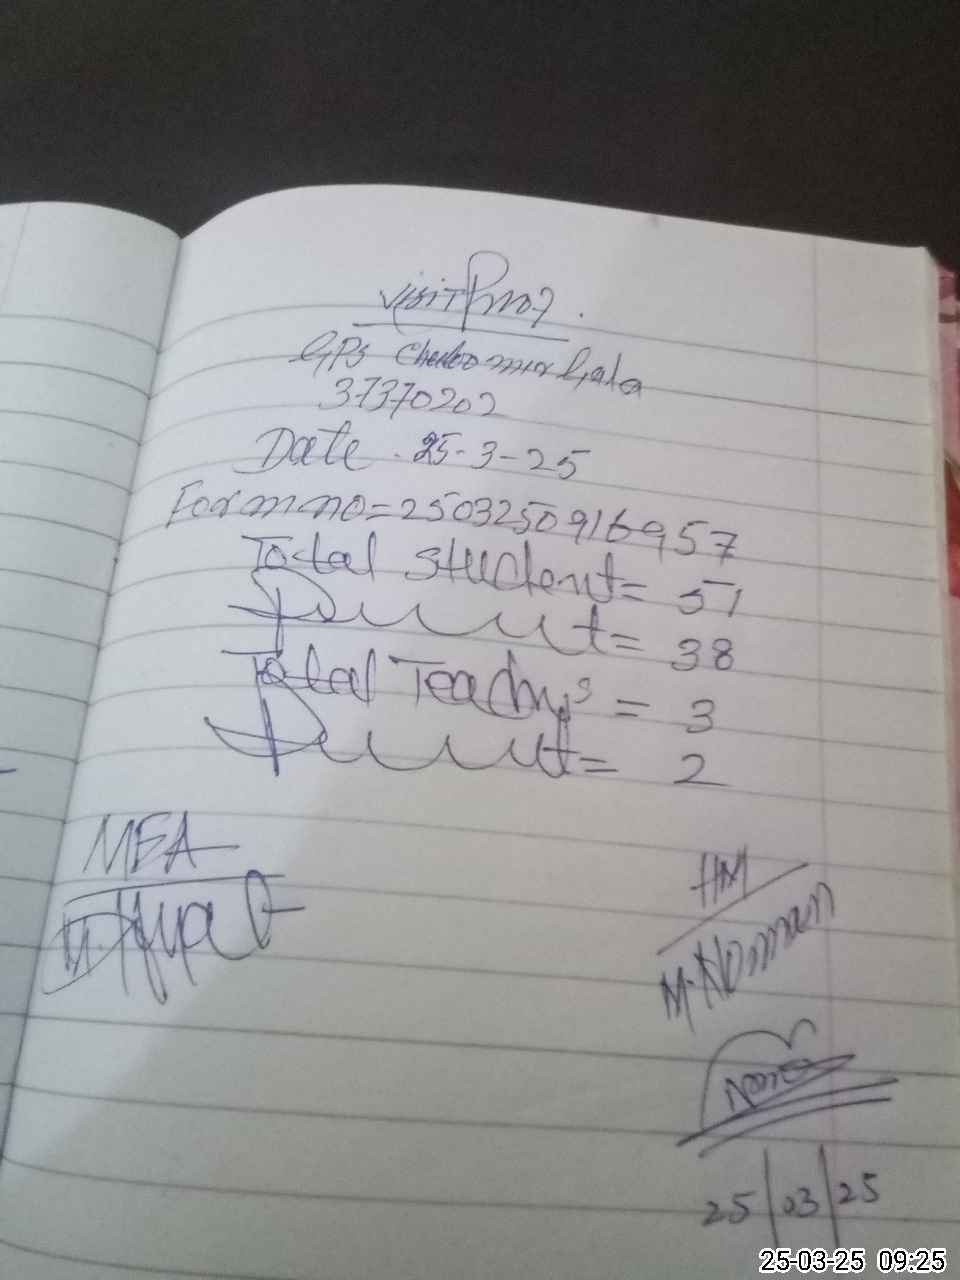 Visit Proof.
GPS mir Gala
37370202
Date. 25-3-25
Form no = 2503250916957
Total Student = 51
Present = 38
Total Teachers = 3
Present = 2
MEA
HM
M. Noman
25/03/25
25-03-25 09:25